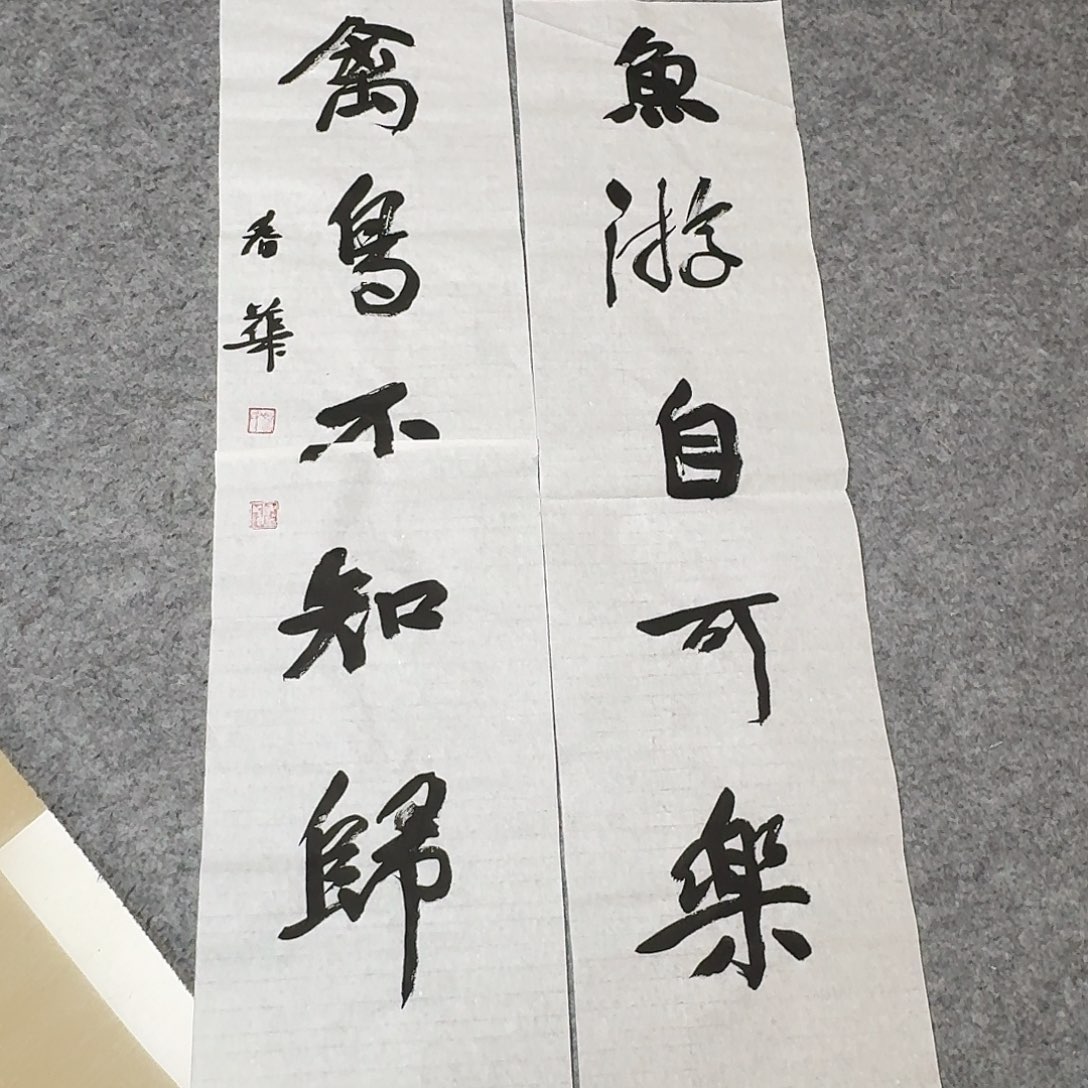 魚游自可樂
禽鳥不知歸
香華